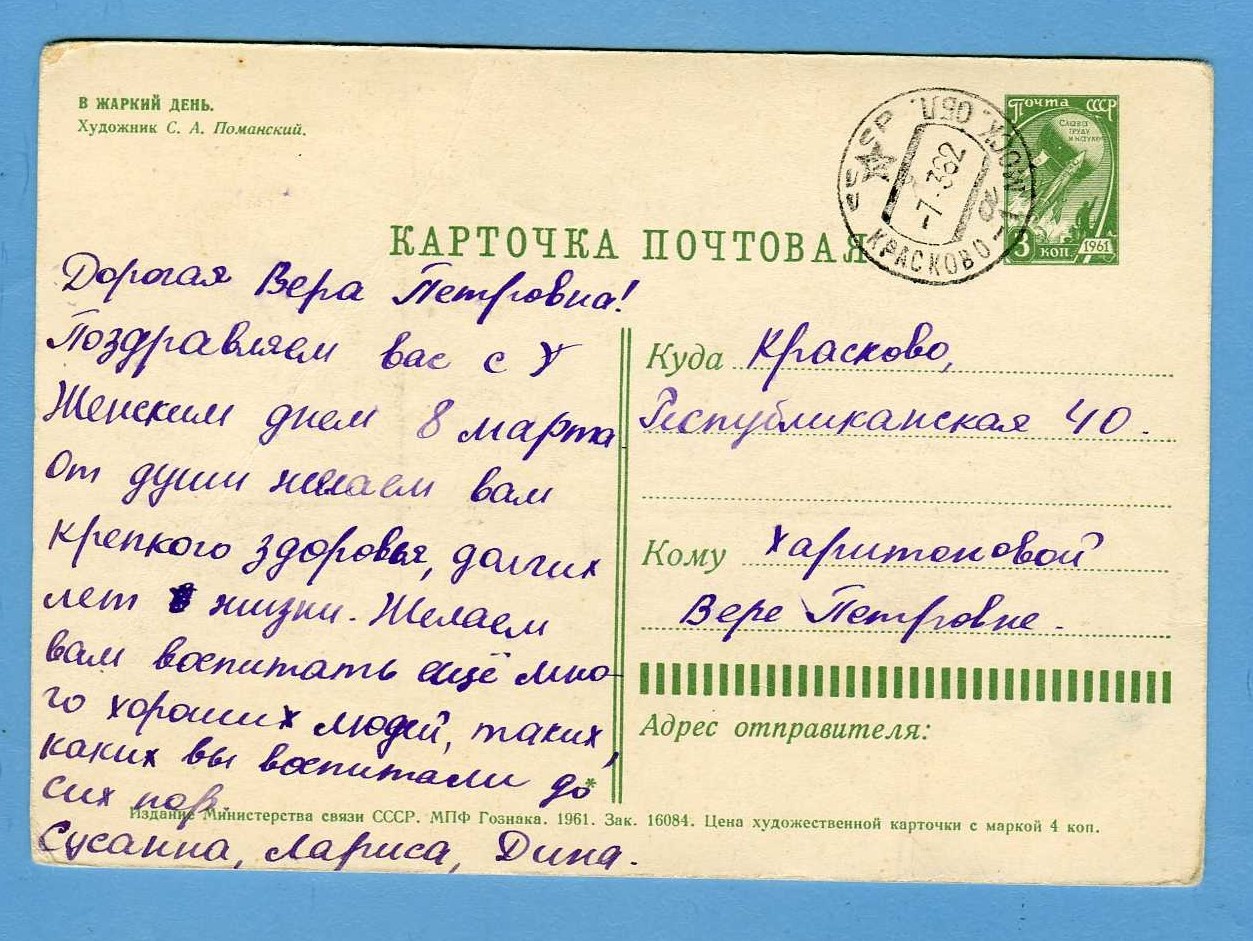 В ЖАРКИЙ ДЕНЬ.
Художник С. А. Поманский.
Почта СССР
Слава
труду
и науке
3 коп. 1961
СССР МОСК. ОБЛ.
-7.362
КРАСКОВО
КАРТОЧКА ПОЧТОВАЯ
Дорогая Вера Петровна!
Поздравляем вас с
Женским днем 8 марта
От души желаем вам
крепкого здоровья, долгих
лет жизни. Желаем
вам воспитать ещё мно-
го хороших людей, таких,
каких вы воспитали до
сих пор.
Сусанна, Лариса, Дина.
Куда Красково,
Республиканская 40.
Кому Харитоновой
Вере Петровне.
Адрес отправителя:
Издание Министерства связи СССР. МПФ Гознака. 1961. Зак. 16084. Цена художественной карточки с маркой 4 коп.